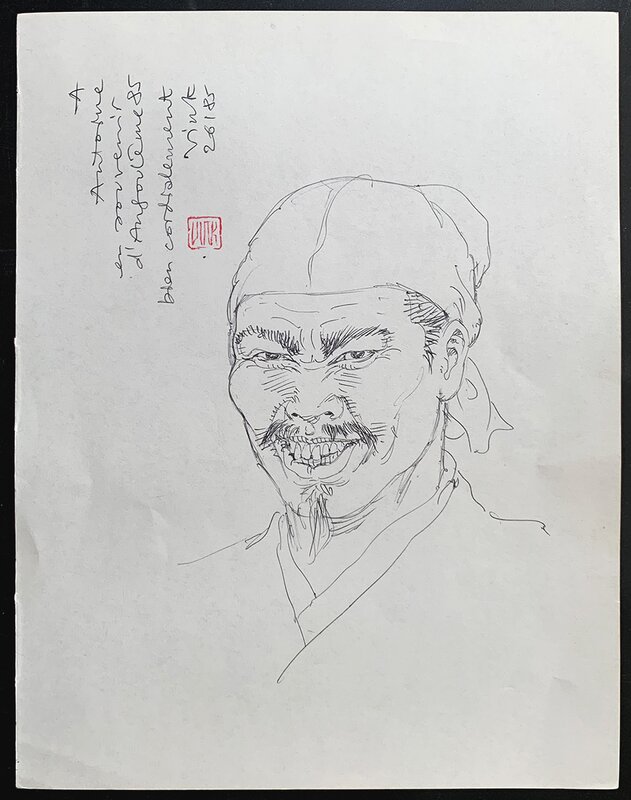 A
Antoine
en souvenir
d'Angoulême 85
bien cordialement
Vink
26 1 85
VINK